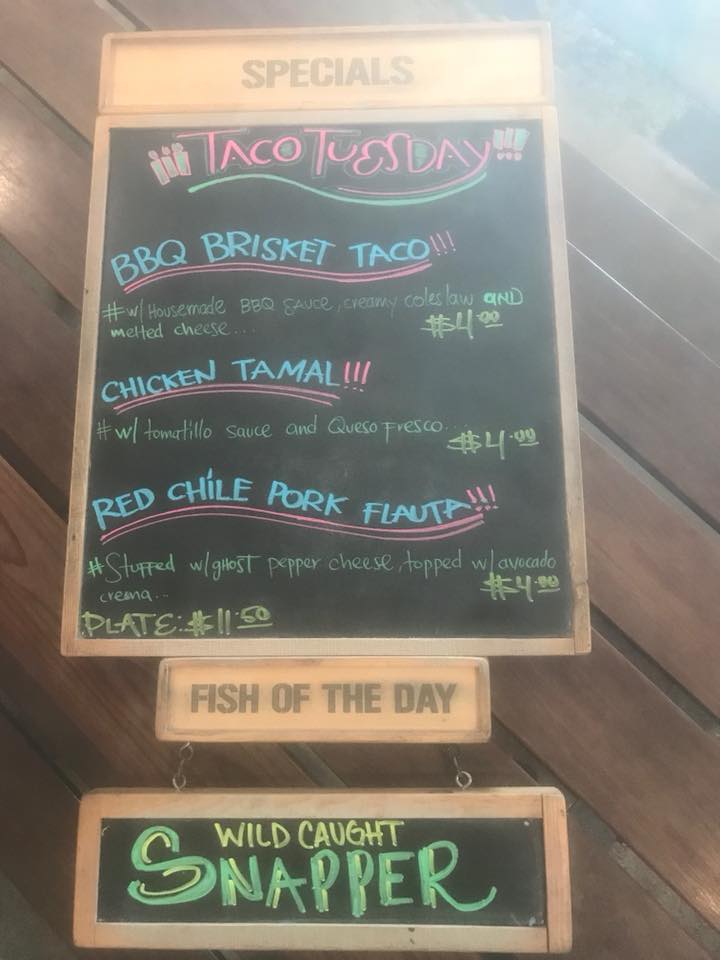 SPECIALS
¡¡¡TACO TUESDAY!!!
BBQ BRISKET TACO!!!
#w/ Housemade BBQ Sauce, creamy coleslaw AND
melted cheese... $4.00
CHICKEN TAMAL!!!
#w/ tomatillo sauce and Queso Fresco... $4.00
RED CHILE PORK FLAUTA!!!
#Stuffed w/ghost pepper cheese, topped w/ avocado
crema... $4.00
PLATE: $11.50
FISH OF THE DAY
WILD CAUGHT
SNAPPER